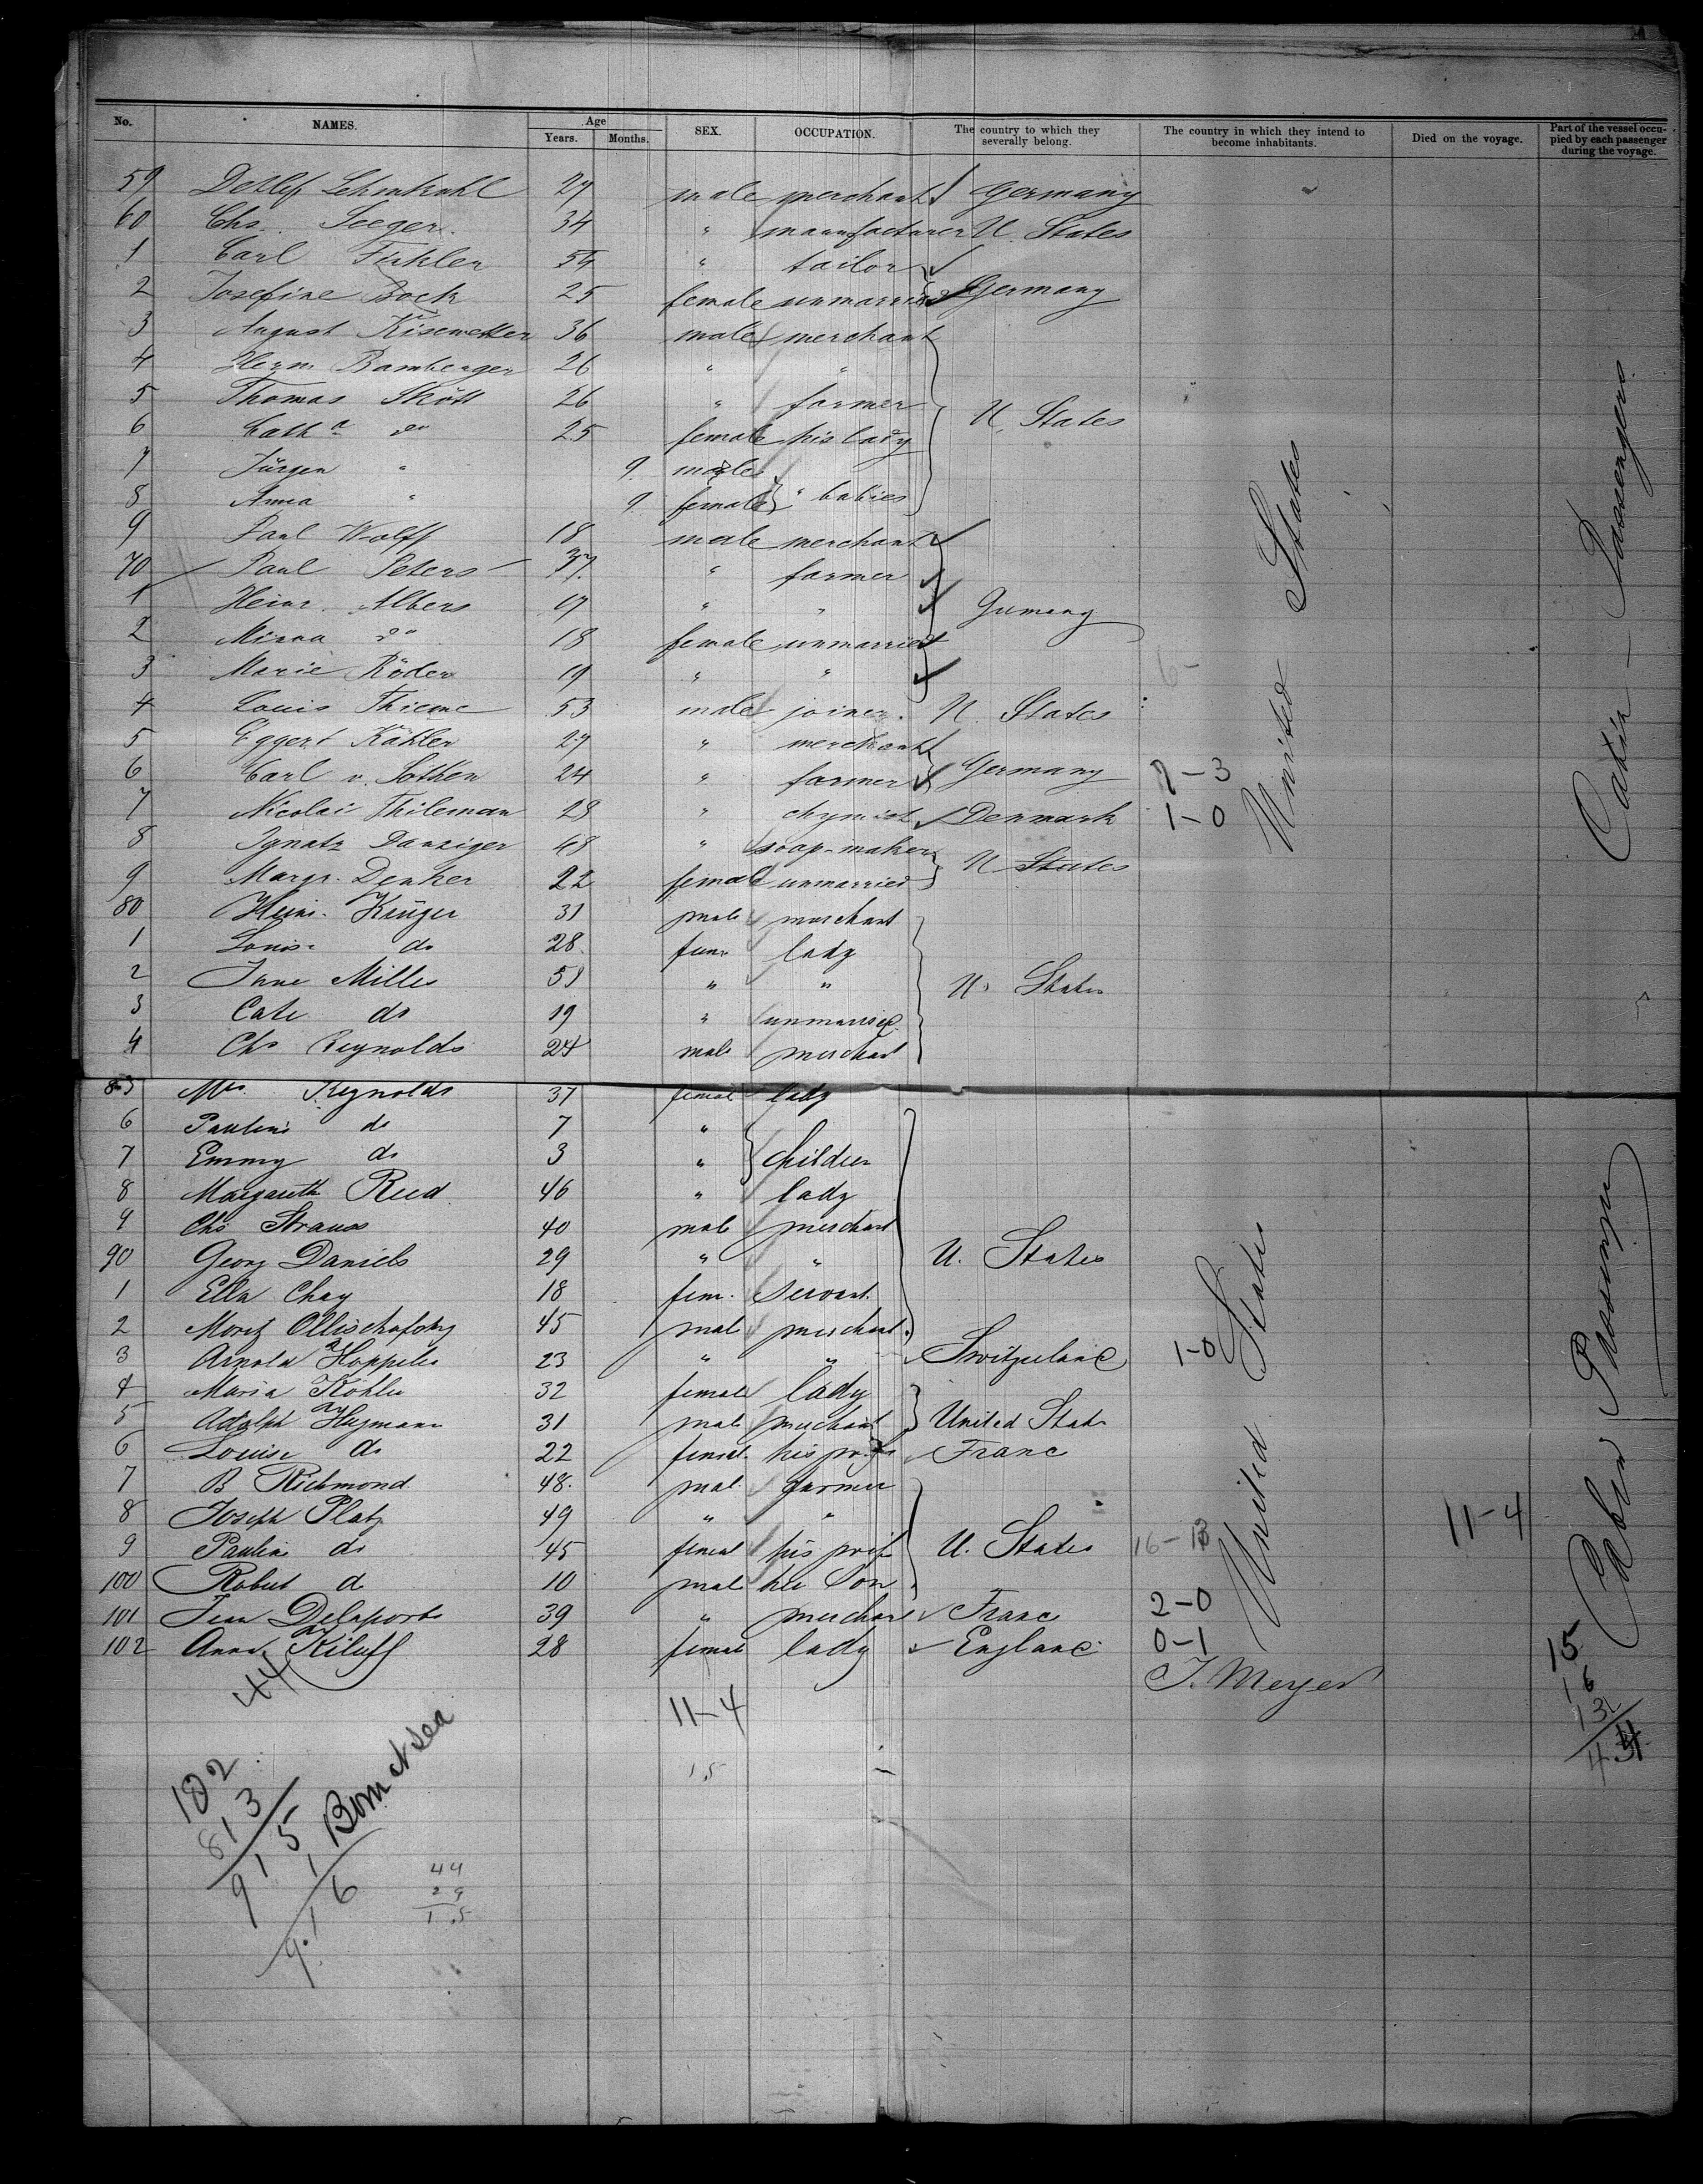 No. NAMES. Age Years. Months. SEX. OCCUPATION. The country to which they severally belong. The country in which they intend to become inhabitants. Died on the voyage. Part of the vessel occupied by each passenger during the voyage.
59 Detlef 27 male merchant Germany
60 Chs. Seeger 34 " manufacturer U. States
1 Carl 54 " tailor
2 Josefine Bock 25 female unmarried Germany
3 August Kisewetter 36 male merchant
4 Herm. Bamberger 26 " "
5 Thomas 26 " farmer U. States
6 Catha do 25 female his lady
7 Jürgen " 9 male
8 Anna " 9 female " babies
9 Paul Wolff 18 male merchant
70 Paul Peters 37 " farmer
1 Heinr. Albers 17 " " Germany
2 Minna do 18 female unmarried
3 Marie Röder 19 " "
4 Louis Thieme 53 male joiner U. States
5 Eggert Köhler 27 " merchant
6 Carl v. Sothen 24 " farmer Germany
7 Nicolai Thileman 28 " chymist Denmark 1-0
8 Ignatz Danziger 48 " soap-maker U States
9 Margr. Denker 22 female unmarried
80 Heinr. Krüger 31 male merchant
1 Louise do 28 fem lady
2 Jane Milles 51 " " U. States
3 Cate do 19 " unmarried
4 Chs Reynolds 24 male merchant
85 Mrs. Reynolds 37 female lady
6 Pauline do 7 "
7 Emmy do 3 " Children
8 Margareth Reed 46 " lady
9 Chs Strauss 40 male merchant
90 Georg Daniels 29 " " U. States
1 Ella Chay 18 fem. Servant.
2 Moritz 45 male merchant
3 Arnold 23 " " Switzerland 1-0
4 Maria Köhler 32 female lady
5 Adolph Heymann 31 male merchant United States
6 Louise do 22 female his France
7 B Richmond 48. male farmer
8 Joseph Platz 49 " "
9 Pauline do 45 female his U. States 11-4
100 Robert do 10 male his Son
101 Jean Delaporte 39 " merchant France 2-0
102 Anna 28 female lady England 0-1
J. Meyer
United States
United States
Cabin - Passengers
Cabin Passengers
44
11-4
15
102
813
915
1 Born at sea
916
44
29
15
15
16
13